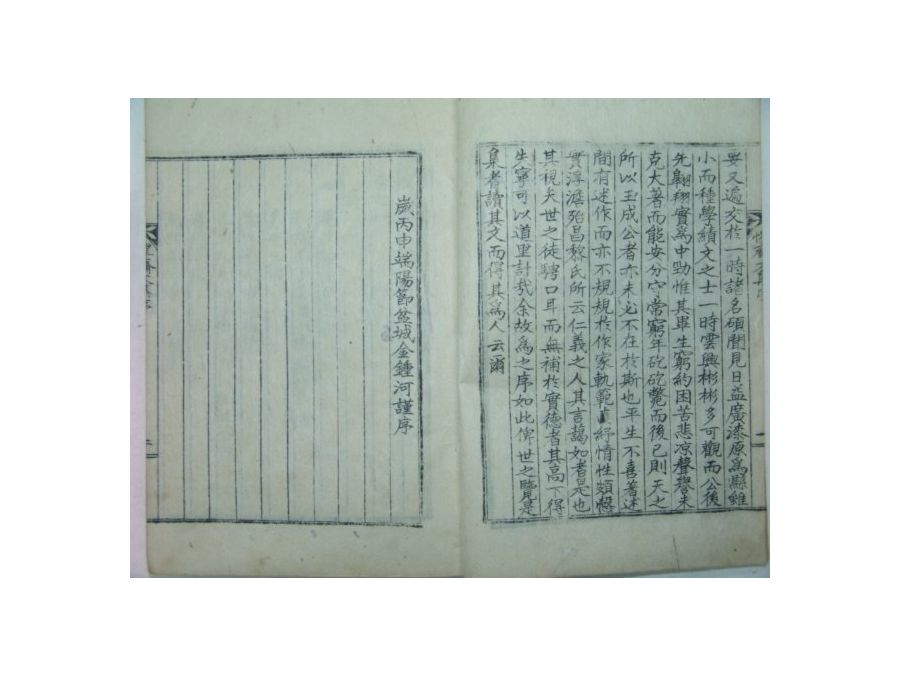 要又遍交於一時諸名碩聞見日益廣漆原爲縣雖
小而種學績文之士一時雲興彬彬多可觀而公後
先翺翔實爲中勁惟其畢生窮約困苦悲凉聲譽未
克大著而能安分守常窮年矻矻斃而後已則天之
所以玉成公者亦未必不在於斯也平生不喜著述
間有述作而亦不規規於作家軌範直紓情性頗
實浮淲殆昌黎氏所云仁義之人其言藹如者是也
其視夫世之徒騁口耳而無補於實德者其高下得
失寧可以道里計哉余故爲之序如此俾世之覽是
集者讀其文而得其爲人云爾
歲丙申端陽節盆城金鍾河謹序